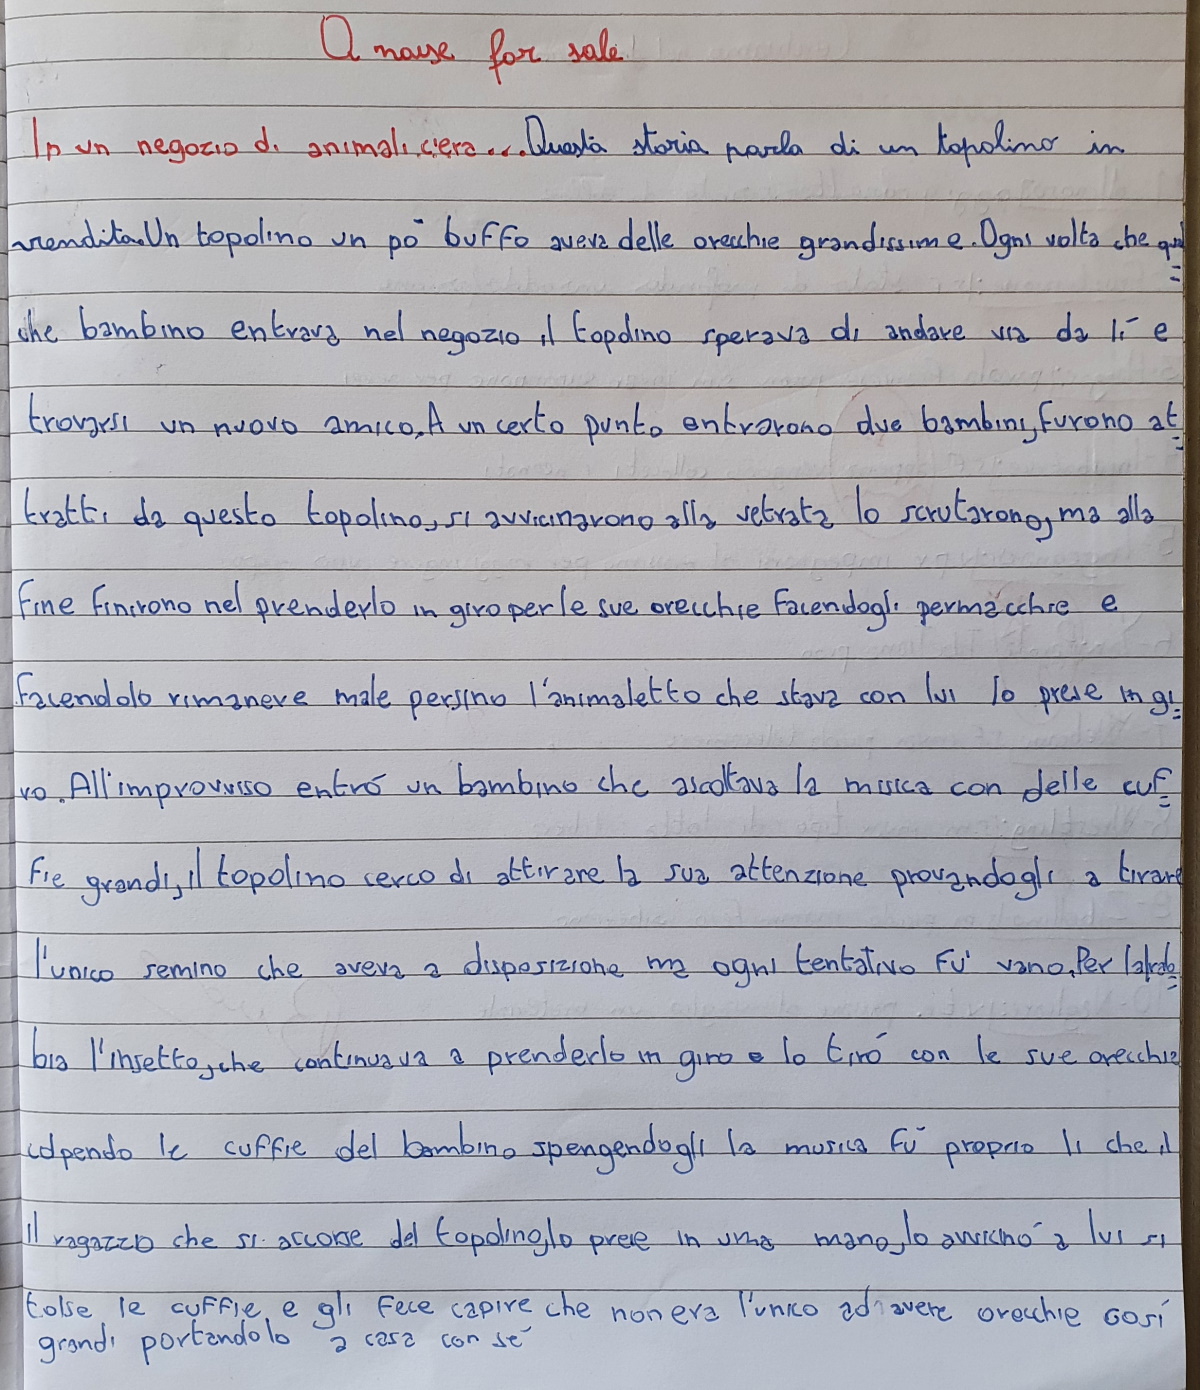 A mouse for sale
In un negozio di animali c'era...Questa storia parla di un topolino in
vendita.Un topolino un pò buffo aveva delle orecchie grandissime.Ogni volta che qual
che bambino entrava nel negozio il topolino sperava di andare via da lì e
trovarsi un nuovo amico.A un certo punto entrarono due bambini,furono at
tratti da questo topolino,si avvicinarono alla vetrata lo scrutarono,ma alla
fine finirono nel prenderlo in giro per le sue orecchie facendogli permacchie e
facendolo rimanere male persino l'animaletto che stava con lui lo prese in gi
ro.All'improvviso entrò un bambino che ascoltava la musica con delle cuf
fie grandi,il topolino cerco di attirare la sua attenzione provandogli a tirare
l'unico semino che aveva a disposizione ma ogni tentativo fù vano.Per la rab
bia l'insetto,che continuava a prenderlo in giro e lo tirò con le sue orecchie
colpendo le cuffie del bambino spengendogli la musica fù proprio li che il
il ragazzo che si accorse del topolino,lo prese in una mano,lo avvicinò a lui si
tolse le cuffie e gli fece capire che non era l'unico ad avere orecchie così
grandi portandolo a casa con sé